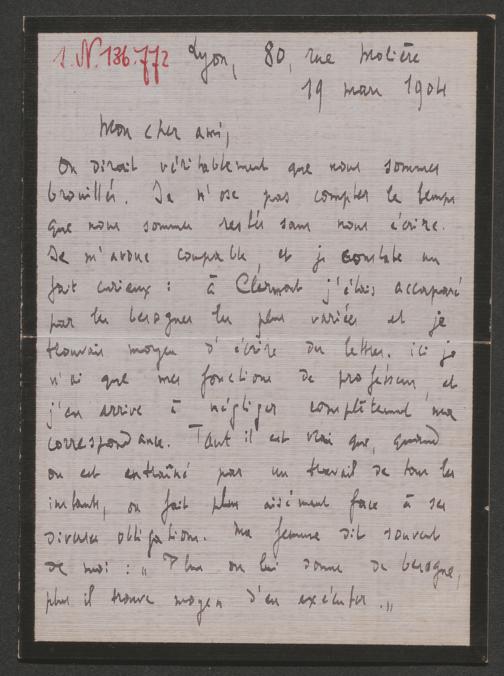 1.N.136.772
Lyon, 80, rue Molière
19 mars 1904
Mon cher ami,
On dirait véritablement que nous sommes
brouillés. Je n'ose pas compter le temps
que nous sommes restés sans nous écrire.
Je m'avoue coupable, et je constate un
fait curieux : à Clermont j'étais accaparé
par les besognes les plus variées et je
trouvais moyen d'écrire des lettres. ici je
n'ai que mes fonctions de professeur, et
j'en arrive à négliger complètement ma
correspondance. Tant il est vrai que, quand
on est entraîné par un travail de tous les
instants, on fait plus aisément face à ses
diverses obligations. Ma femme dit souvent
de moi : „ Plus on lui donne de besogne,
plus il trouve moyen d'en exécuter. „